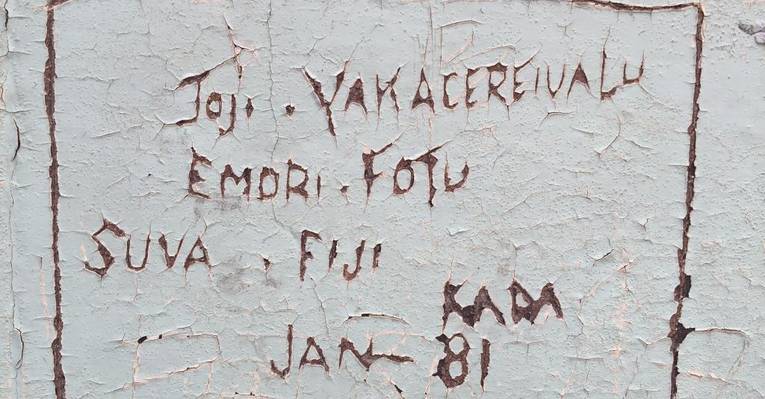 JOJI. VAKACEREIVALU
EMORI. FOTU
SUVA. FIJI
KADA
JAN 81